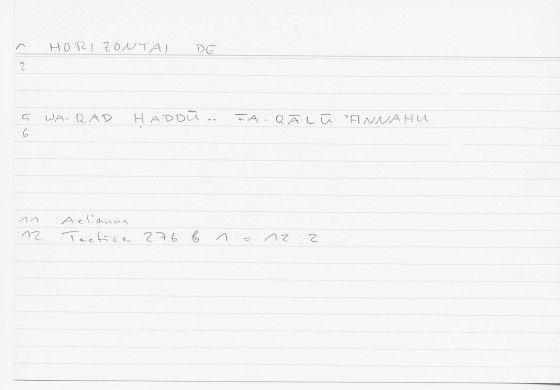 1 HORIZONTAL DE
2
5 WA-QAD ḤADDŪ.. FA-QĀLŪ 'ANNAHU
6
11 Aelianus
12 Tactica 276 b 1 = 12.2